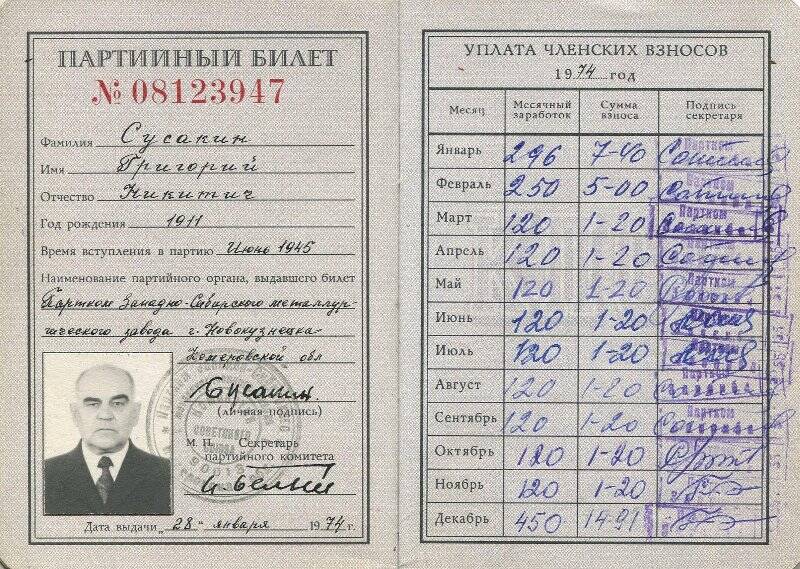 ПАРТИЙНЫЙ БИЛЕТ
№ 08123947
Фамилия Сусакин
Имя Григорий
Отчество Никитич
Год рождения 1911
Время вступления в партию Июнь 1945
Наименование партийного органа, выдавшего билет
Партком Западно-Сибирского металлур-
гического завода г. Новокузнецка
Кемеровской обл
Сусакин
(личная подпись)
М. П. Секретарь
партийного комитета
Дата выдачи „28" января 1974 г.
УПЛАТА ЧЛЕНСКИХ ВЗНОСОВ
1974 год
Месяц Месячный заработок Сумма взноса Подпись секретаря
Январь 296 7-40 Партком
Февраль 250 5-00 Партком
Март 120 1-20 Партком
Апрель 120 1-20 Партком
Май 120 1-20 Партком
Июнь 120 1-20
Июль 120 1-20
Август 120 1-20
Сентябрь 120 1-20 Партком
Октябрь 120 1-20
Ноябрь 120 1-20
Декабрь 450 14-91